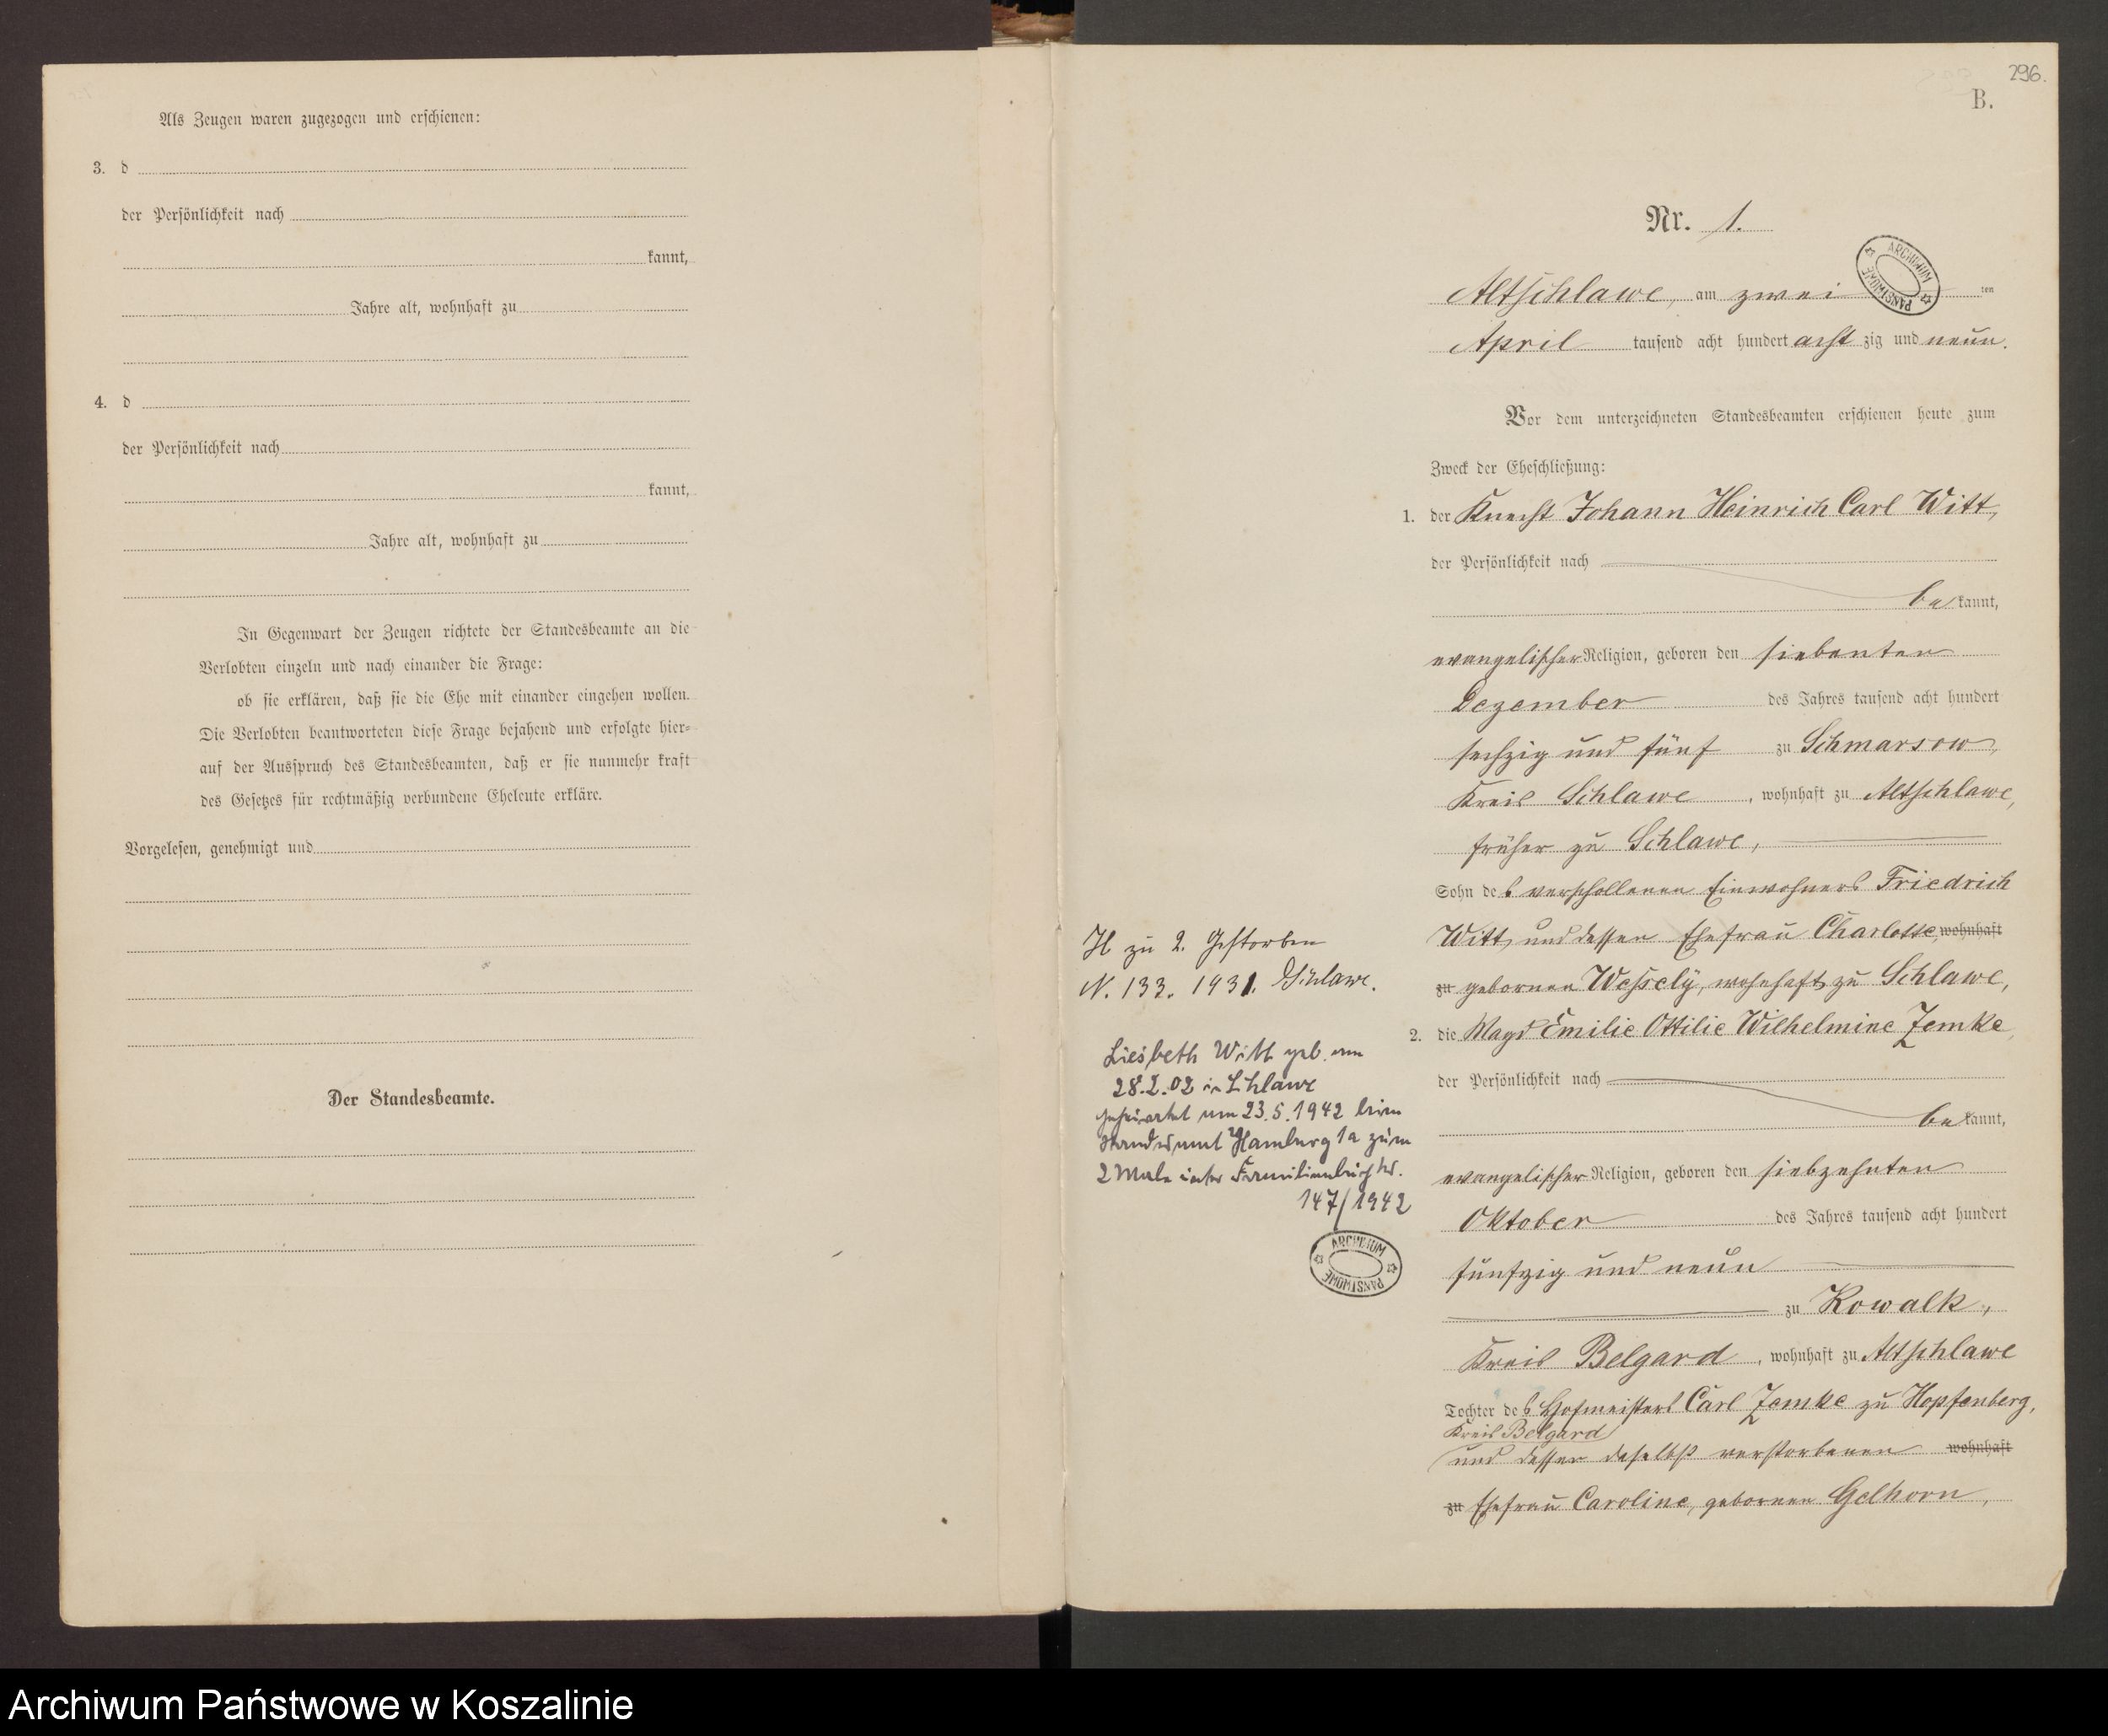 Als Zeugen waren zugezogen und erschienen:
3. d
der Persönlichkeit nach
kannt,
Jahre alt, wohnhaft zu
4. d
der Persönlichkeit nach
kannt,
Jahre alt, wohnhaft zu
In Gegenwart der Zeugen richtete der Standesbeamte an die
Verlobten einzeln und nach einander die Frage:
ob sie erklären, daß sie die Ehe mit einander eingehen wollen.
Die Verlobten beantworteten diese Frage bejahend und erfolgte hier-
auf der Ausspruch des Standesbeamten, daß er sie nunmehr kraft
des Gesetzes für rechtmäßig verbundene Eheleute erkläre.
Vorgelesen, genehmigt und
Der Standesbeamte.
296.
B.
Nr. 1.
ARCHIWUM PAŃSTWOWE
Altschlawe, am zwei ten
April tausend acht hundert acht zig und neun.
Vor dem unterzeichneten Standesbeamten erschienen heute zum
Zweck der Eheschließung:
1. der Knecht Johann Heinrich Carl Witt,
der Persönlichkeit nach
be kannt,
evangelischer Religion, geboren den siebenten
Dezember des Jahres tausend acht hundert
sechzig und fünf zu Schmarsow,
Kreis Schlawe, wohnhaft zu Altschlawe,
früher zu Schlawe,
Sohn des verschollenen Einwohners Friedrich
Witt, und dessen Ehefrau Charlotte, wohnhaft
zu gebornen Wessely, wohnhaft zu Schlawe,
2. die Magd Emilie Ottilie Wilhelmine Zemke,
der Persönlichkeit nach
be kannt,
evangelischer Religion, geboren den siebzehnten
Oktober des Jahres tausend acht hundert
fünfzig und neun
zu Kowalk,
Kreis Belgard, wohnhaft zu Altschlawe
Tochter des Hofmeisters Carl Zemke zu Hopfenberg,
Kreis Belgard
und dessen daselbst verstorbenen wohnhaft
zu Ehefrau Caroline, gebornen Gelhorn,
H zu 2. Gestorben
N. 133. 1931. Schlawe.
Liesbeth Witt geb. am
28.2.02 in Schlawe
geheiratet am 23.5.1942 beim
Standesamt Hamburg 1a zum
2 Male Familienbuch Nr.
147/1942
ARCHIWUM PAŃSTWOWE
Archiwum Państwowe w Koszalinie